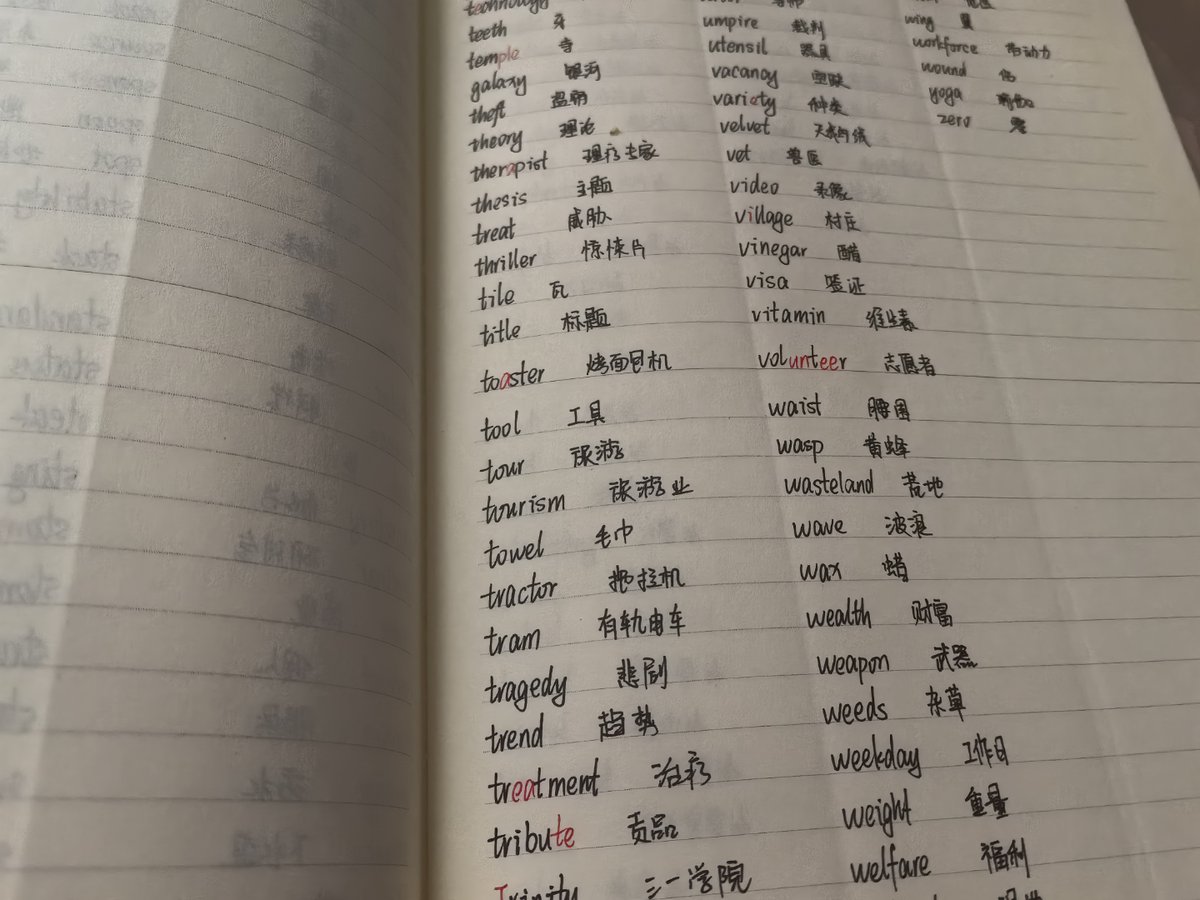 technology
teeth 牙
temple 寺
galaxy 银河
theft 盗窃
theory 理论
therapist 理疗专家
thesis 主题
treat 威胁
thriller 惊悚片
tile 瓦
title 标题
toaster 烤面包机
tool 工具
tour 旅游
tourism 旅游业
towel 毛巾
tractor 拖拉机
tram 有轨电车
tragedy 悲剧
trend 趋势
treatment 治疗
tribute 贡品
Trinity 三一学院
umpire 裁判
utensil 器具
vacancy 空缺
variety 种类
velvet 天鹅绒
vet 兽医
video 录像
village 村庄
vinegar 醋
visa 签证
vitamin 维生素
volunteer 志愿者
waist 腰围
wasp 黄蜂
wasteland 荒地
wave 波浪
wax 蜡
wealth 财富
weapon 武器
weeds 杂草
weekday 工作日
weight 重量
welfare 福利
wing 翼
workforce 劳动力
wound 伤
yoga 瑜伽
zero 零